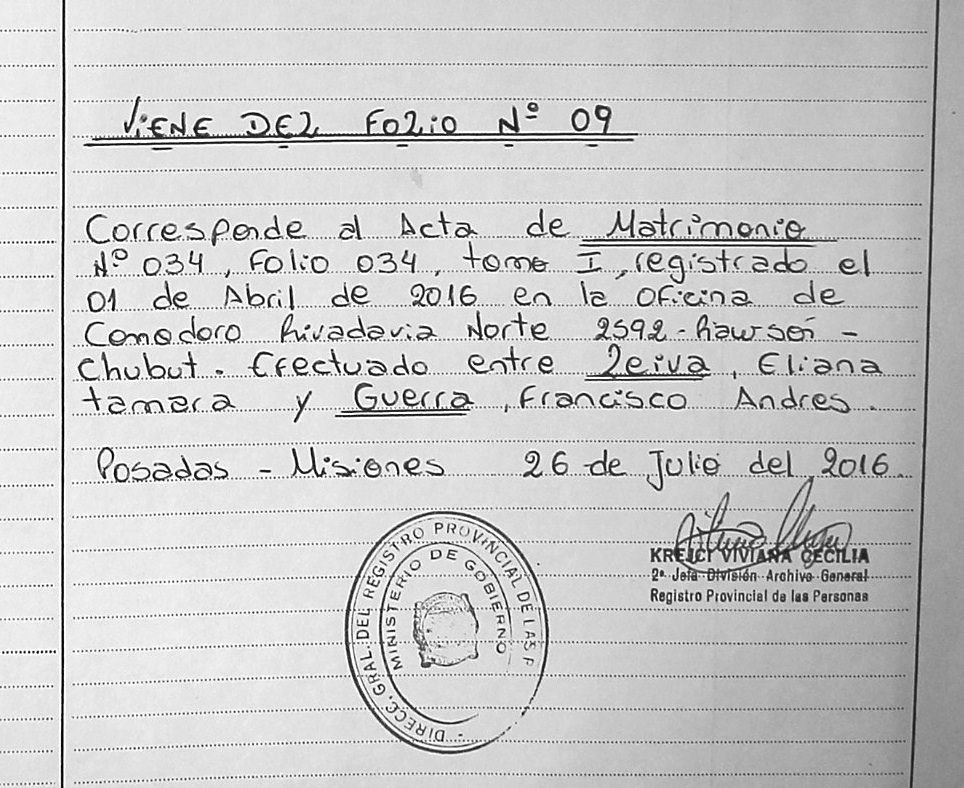 Viene del Folio Nº 09
Corresponde al Acta de Matrimonio
Nº 034, Folio 034, tomo I, registrado el
01 de Abril de 2016 en la Oficina de
Comodoro Rivadavia Norte 2592 - Rawson -
Chubut. Efectuado entre Leiva, Eliana
tamara y Guerra, Francisco Andres.
Posadas - Misiones 26 de Julio del 2016.
KREJCI VIVIANA CECILIA
2ª Jefa División Archivo General
Registro Provincial de las Personas
DIRECC. GRAL. DEL REGISTRO PROVINCIAL DE LAS P
MINISTERIO DE GOBIERNO